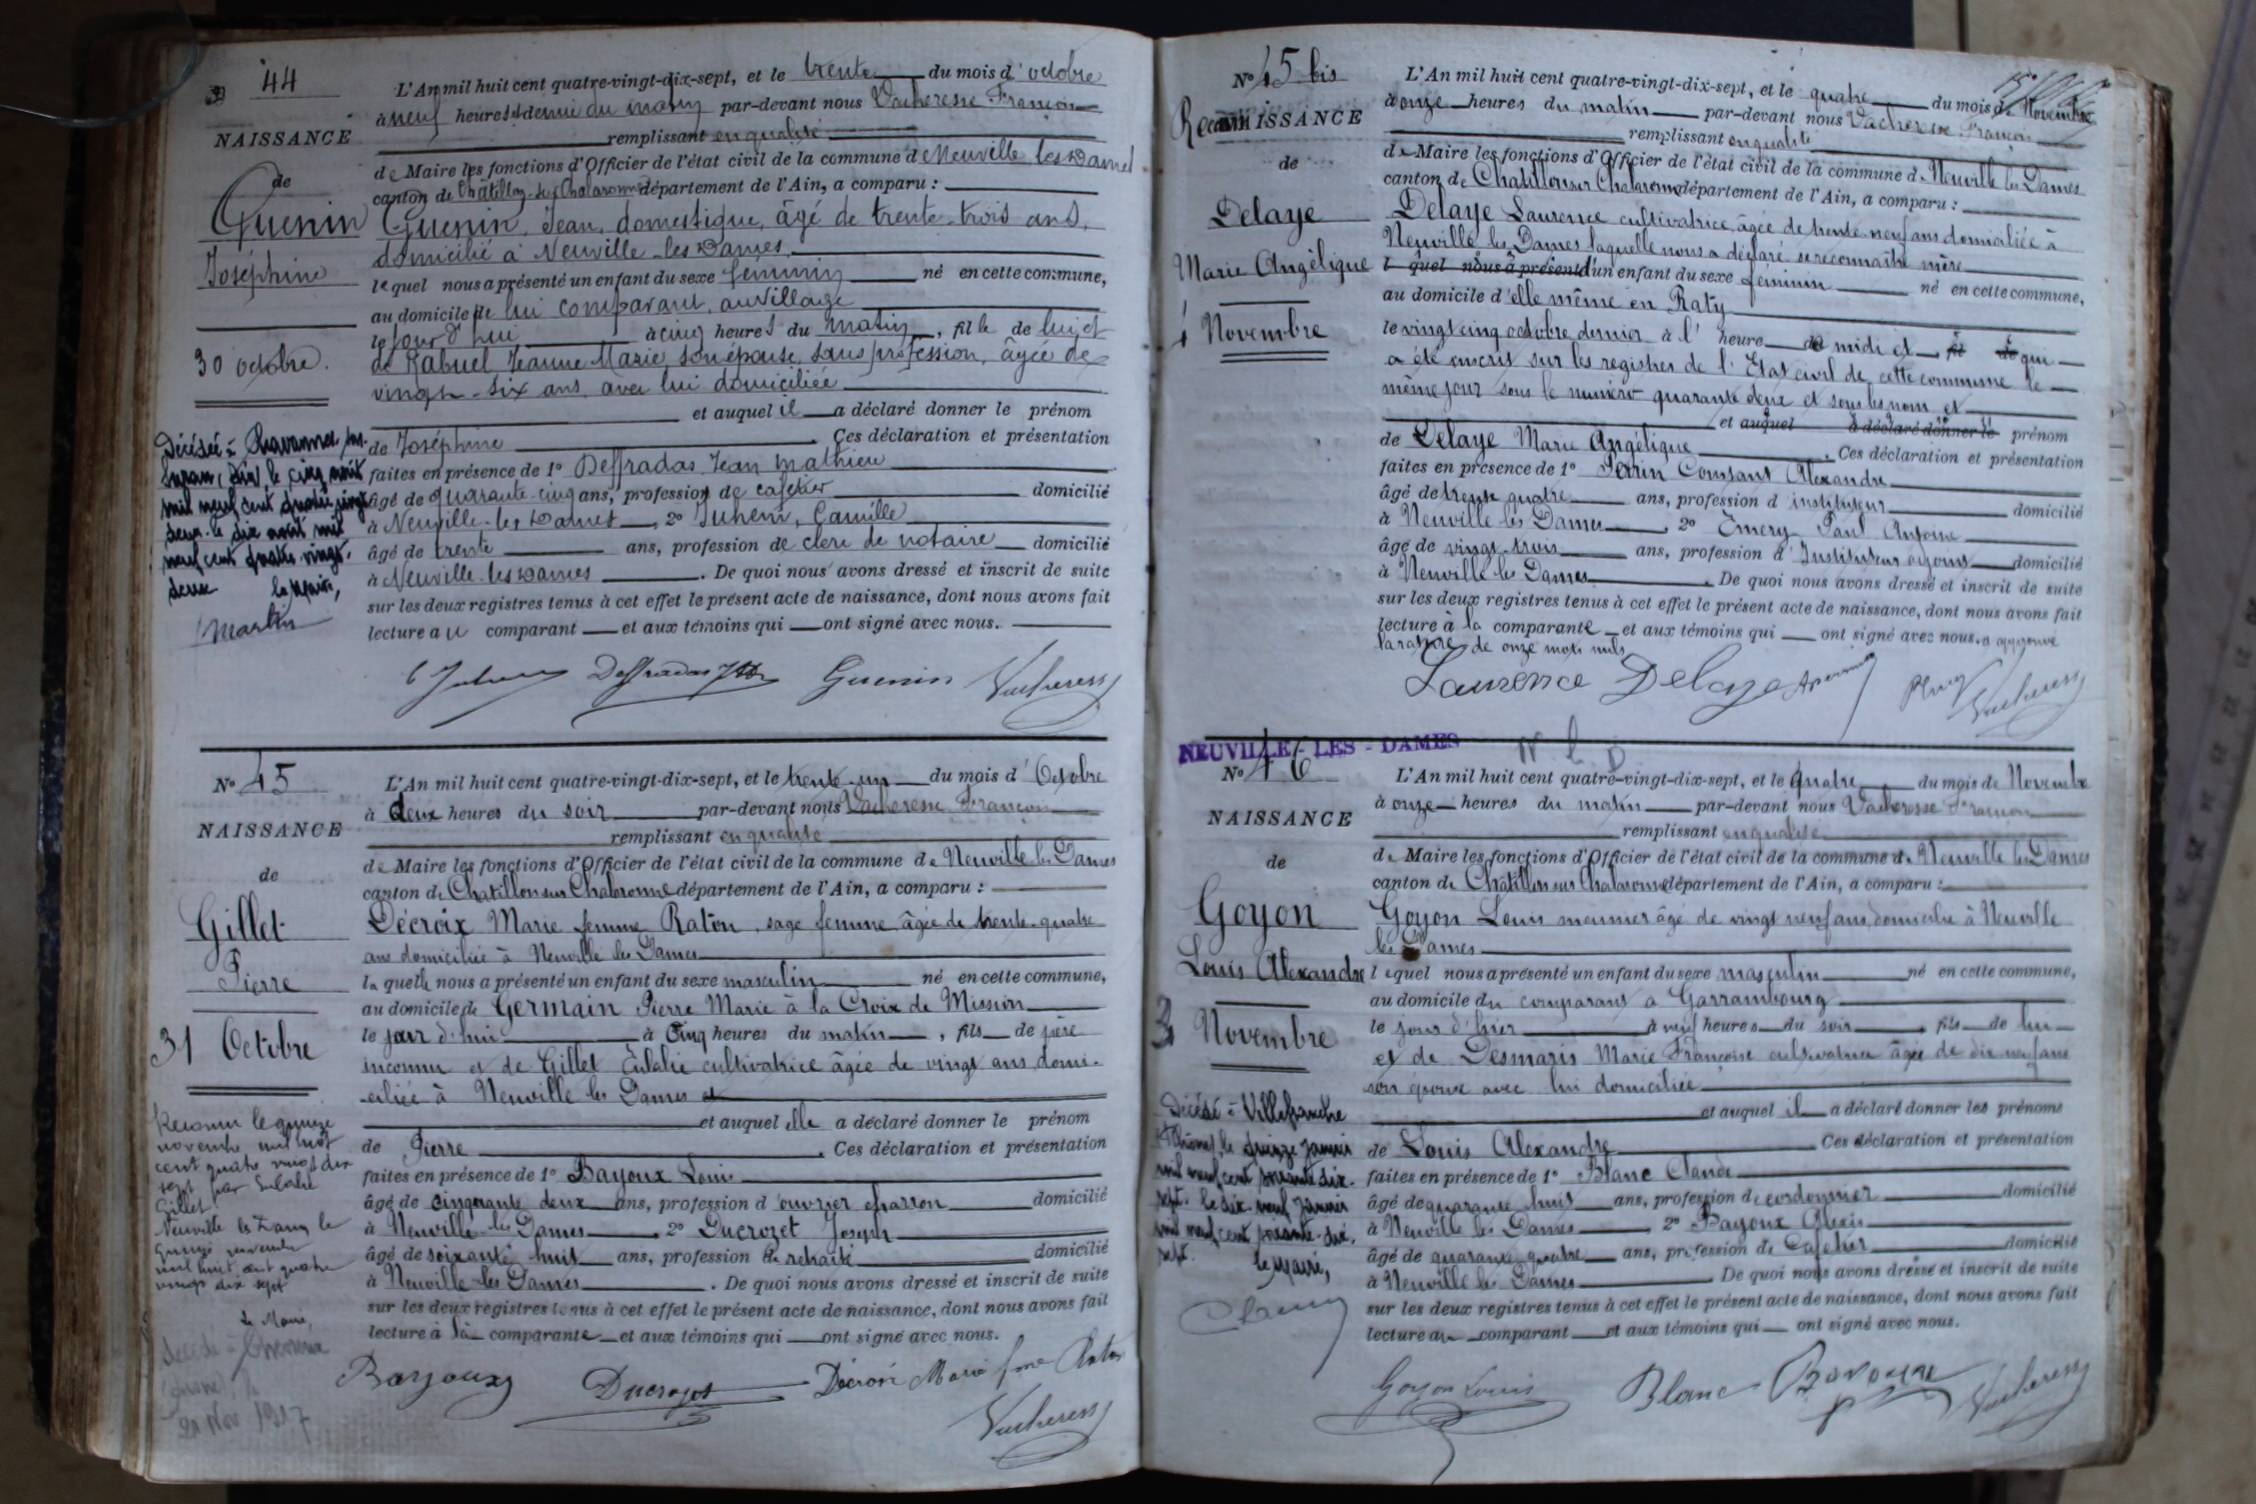 44
NAISSANCE
de
Guenin
Joséphine
30 octobre.
L'An mil huit cent quatre-vingt-dix-sept, et le trente du mois d'octobre
à neuf heures et demie du matin par-devant nous Vacheresse François
remplissant en qualité
de Maire les fonctions d'Officier de l'état civil de la commune de Neuville les Dames
canton de Châtillon-sur-Chalaronne département de l'Ain, a comparu :
Guenin, Jean, domestique, âgé de trente-trois ans,
domicilié à Neuville-les-Dames
lequel nous a présenté un enfant du sexe féminin né en cette commune,
au domicile de lui comparant, au village
le jour d'hui à cinq heures du matin, fille de lui et
de Rabuel Jeanne Marie son épouse, sans profession, âgée de
vingt-six ans avec lui domiciliée
et auquel il a déclaré donner le prénom
de Joséphine. Ces déclaration et présentation
faites en présence de 1° Deffradas Jean Mathieu
âgé de quarante-cinq ans, profession de cafetier domicilié
à Neuville-les-Dames, 2° Juhem, Camille
âgé de trente ans, profession de clerc de notaire domicilié
à Neuville-les-Dames. De quoi nous avons dressé et inscrit de suite
sur les deux registres tenus à cet effet le présent acte de naissance, dont nous avons fait
lecture au comparant et aux témoins qui ont signé avec nous.
Décédée à
Suran, (Ain), le cinq août
mil neuf cent quatre vingt
deux. le dix août mil
neuf cent quatre vingt
deux le Maire,
Martin
Guenin Vacheresse
N° 45
NAISSANCE
de
Gillet
Pierre
31 Octobre
L'An mil huit cent quatre-vingt-dix-sept, et le trente-un du mois d'Octobre
à deux heures du soir par-devant nous Vacheresse François
remplissant en qualité
de Maire les fonctions d'Officier de l'état civil de la commune de Neuville les Dames
canton de Chatillon sur Chalaronne département de l'Ain, a comparu :
Décroix Marie femme Raton, sage femme âgée de trente-quatre
ans domiciliée à Neuville les Dames
laquelle nous a présenté un enfant du sexe masculin né en cette commune,
au domicile de Germain Pierre Marie à la Croix de Mission
le jour d'hui à Cinq heures du matin, fils de père
inconnu et de Gillet Eulalie cultivatrice âgée de vingt ans domi-
ciliée à Neuville les Dames et
et auquel elle a déclaré donner le prénom
de Pierre. Ces déclaration et présentation
faites en présence de 1° Bayoux Louis
âgé de cinquante deux ans, profession d'ouvrier charron domicilié
à Neuville-les-Dames, 2° Ducrozet Joseph
âgé de soixante huit ans, profession de retraité domicilié
à Neuville-les-Dames. De quoi nous avons dressé et inscrit de suite
sur les deux registres tenus à cet effet le présent acte de naissance, dont nous avons fait
lecture à la comparante et aux témoins qui ont signé avec nous.
Reconnu le quinze
novembre mil huit
cent quatre vingt dix
sept par Eulalie
Gillet
Neuville les Dames le
quinze novembre
mil huit cent quatre
vingt dix sept
Le Maire,
Décédé à
Bayoux Ducrozet Décroix Marie fme Raton
Vacheresse
N° 45 bis
Reconnaissance
de
Delaye
Marie Angélique
4 Novembre
L'An mil huit cent quatre-vingt-dix-sept, et le quatre du mois de Novembre
à onze heures du matin par-devant nous Vacheresse François
remplissant en qualité
de Maire les fonctions d'Officier de l'état civil de la commune de Neuville les Dames
canton de Chatillon sur Chalaronne département de l'Ain, a comparu :
Delaye Laurence cultivatrice âgée de trente-neuf ans domiciliée à
Neuville les Dames laquelle nous a déclaré se reconnaître mère
lequel nous a présenté d'un enfant du sexe féminin né en cette commune,
au domicile d'elle même en Raty
le vingt cinq octobre dernier à l'heure de midi et fil de qui
a été inscrit sur les registres de l'Etat civil de cette commune le
même jour sous le numéro quarante deux et sous les nom et
et auquel a déclaré donner le prénom
de Delaye Marie Angélique. Ces déclaration et présentation
faites en présence de 1° Perrin Constant Alexandre
âgé de trente quatre ans, profession d'instituteur domicilié
à Neuville les Dames, 2° Emery Paul Antoine
âgé de vingt-trois ans, profession d'Instituteur adjoint domicilié
à Neuville les Dames. De quoi nous avons dressé et inscrit de suite
sur les deux registres tenus à cet effet le présent acte de naissance, dont nous avons fait
lecture à la comparante et aux témoins qui ont signé avec nous. a approuvé
la rature de onze mots nuls
Laurence Delaye Vacheresse
NEUVILLE-LES-DAMES N L D
N° 46
NAISSANCE
de
Goyon
Louis Alexandre
3 Novembre
L'An mil huit cent quatre-vingt-dix-sept, et le quatre du mois de Novembre
à onze heures du matin par-devant nous Vacheresse François
remplissant en qualité
de Maire les fonctions d'Officier de l'état civil de la commune de Neuville les Dames
canton de Châtillon sur Chalaronne département de l'Ain, a comparu :
Goyon Louis meunier âgé de vingt neuf ans domicilié à Neuville
les Dames
lequel nous a présenté un enfant du sexe masculin né en cette commune,
au domicile du comparant à Garrambourg
le jour d'hier à neuf heures du soir, fils de lui
et de Desmaris Marie Françoise cultivatrice âgée de dix neuf ans
son épouse avec lui domiciliée
et auquel il a déclaré donner les prénoms
de Louis Alexandre Ces déclaration et présentation
faites en présence de 1° Blanc Claude
âgé de quarante huit ans, profession de cordonnier domicilié
à Neuville les Dames, 2° Bayoux Alexis
âgé de quarante quatre ans, profession de Cafetier domicilié
à Neuville les Dames. De quoi nous avons dressé et inscrit de suite
sur les deux registres tenus à cet effet le présent acte de naissance, dont nous avons fait
lecture au comparant et aux témoins qui ont signé avec nous.
Décédé à Villefranche
(Rhône), le quinze janvier
mil neuf cent soixante dix-
sept. le dix neuf janvier
mil neuf cent soixante-dix-
sept. le Maire,
Goyon Louis Blanc Bayoux Vacheresse